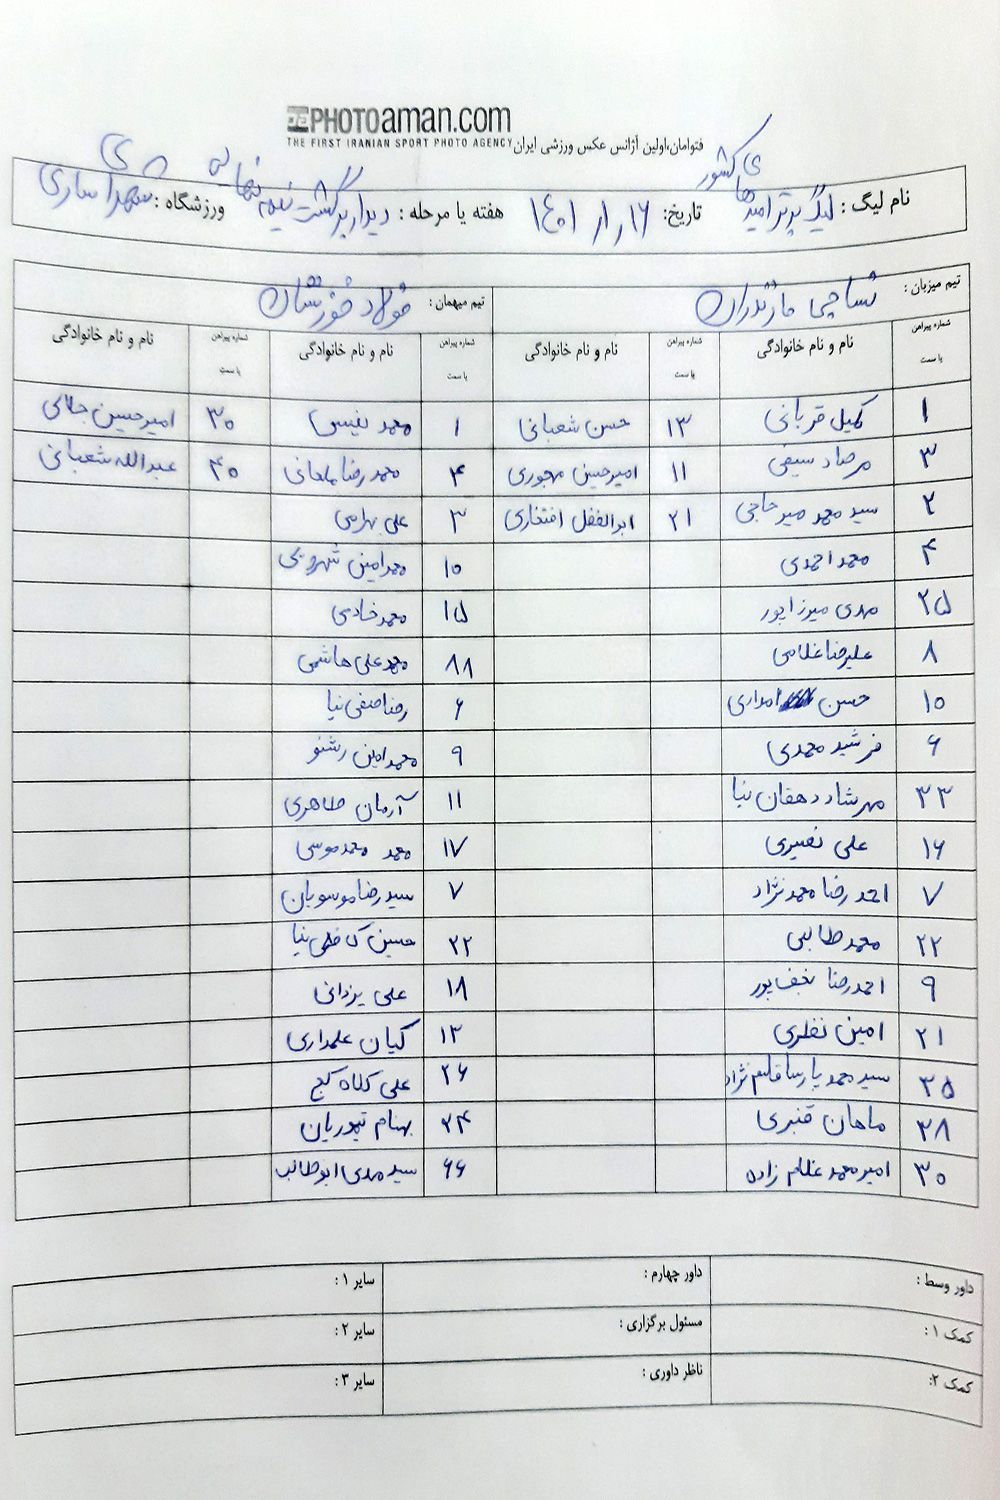 PHOTOaman.com
THE FIRST IRANIAN SPORT PHOTO AGENCY
فتوامان،اولین آژانس عکس ورزشی ایران
نام لیگ : لیگ برتر امیدهای کشور تاریخ: ۱۴۰۱/۱/۱۶ هفته یا مرحله : دیدار برگشت نیمه نهایی ورزشگاه : شهدای ساری
تیم میزبان : نساجی مازندران تیم میهمان : فولاد خوزستان
شماره پیراهن یا سمت نام و نام خانوادگی شماره پیراهن یا سمت نام و نام خانوادگی شماره پیراهن یا سمت نام و نام خانوادگی شماره پیراهن یا سمت نام و نام خانوادگی
۱ کمیل قربانی ۱۳ حسن شعبانی ۱ محمد نفیسی ۳۰ امیرحسین جلالی
۳ مرصاد سیفی ۱۱ امیرحسین مهجوری ۴ محمدرضا ماهانی ۴۰ عبدالله شعبانی
۲ سید محمد میرحاجی ۲۱ ابوالفضل افتخاری ۳ علی بهرامی
۴ محمد احمدی ۱۰ محمدامین شهرویی
۲۵ مهدی میرزاپور ۱۵ محمد خادمی
۸ علیرضا غلامی ۸۸ محمدعلی هاشمی
۱۰ حسن امداری ۶ رضا صفی نیا
۶ فرشید محمدی ۹ محمدامین رشنو
۳۳ مهرشاد دهقان نیا ۱۱ آرمان طاهری
۱۶ علی نصیری ۱۷ محمد محمدموسی
۷ احمدرضا محمدنژاد ۷ سیدرضا موسویان
۲۲ محمد طالبی ۲۲ حسین کاظمی نیا
۹ احمدرضا نجف پور ۱۸ علی یزدانی
۲۱ امین نظری ۱۲ کیان علمداری
۳۵ سید محمد پارسا قاسم نژاد ۲۶ علی کلاه کج
۳۸ ماهان قنبری ۲۴ بهنام تیموریان
۳۰ امیرمحمد غلام زاده ۶۶ سید مهدی ابوطالب
داور وسط : داور چهارم : سایر ۱ :
کمک ۱ : مسئول برگزاری : سایر ۲ :
کمک ۲: ناظر داوری : سایر ۳ :